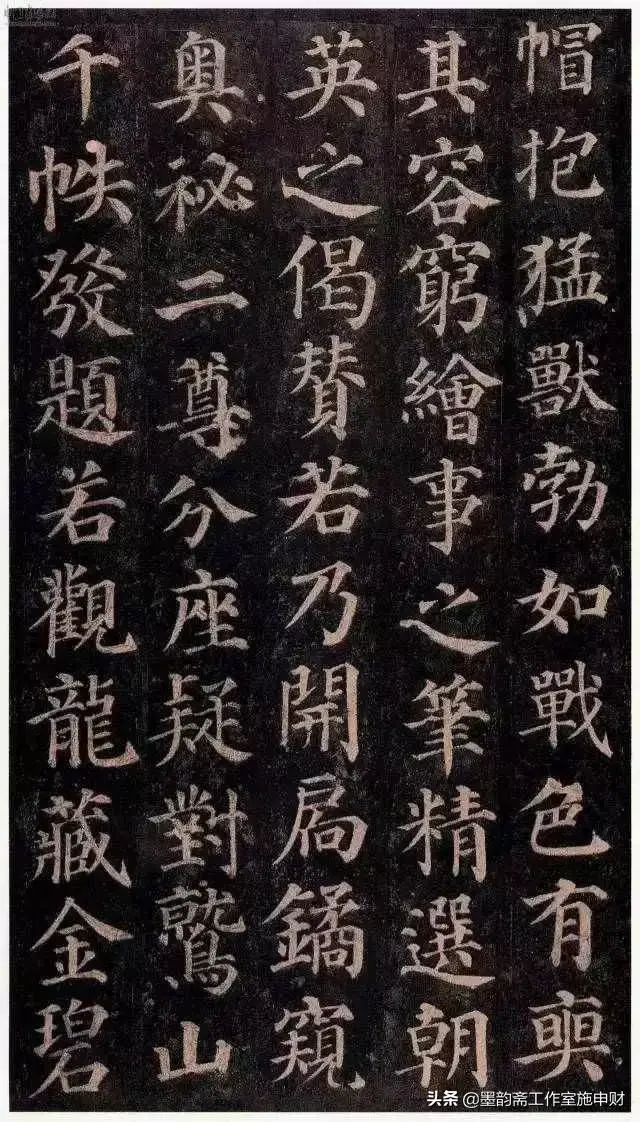 帽抱猛獸勃如戰色有奭
其容窮繪事之筆精選朝
英之偈賛若乃開扃鐍窺
奧祕二尊分座疑對鷲山
千帙發題若觀龍藏金碧
头条 @墨韵斋工作室施申财